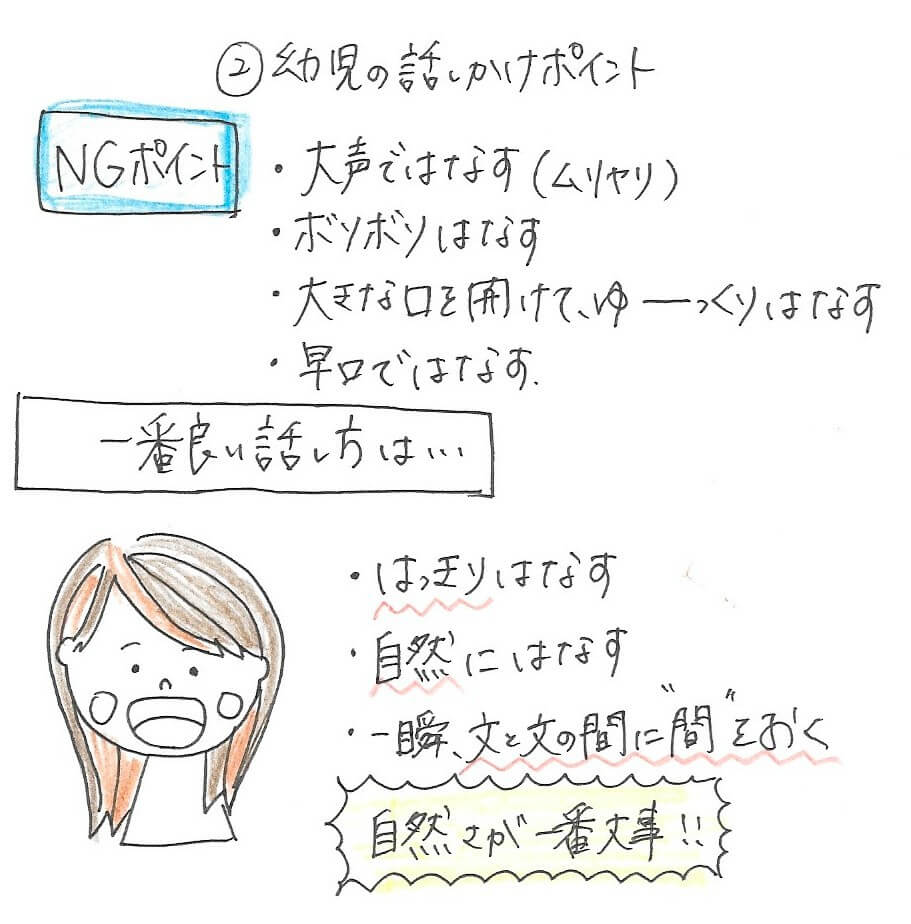 ②幼児の話しかけポイント
NGポイント
・大声ではなす(ムリヤリ)
・ボソボソはなす
・大きな口を開けて、ゆーっくりはなす
・早口ではなす.
一番良い話し方は…
・はっきりはなす
・自然にはなす
・一瞬、文と文の間に"間"をおく
自然さが一番大事!!